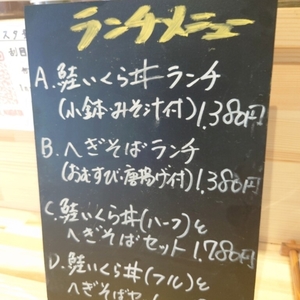 ランチメニュー
A.鮭いくら丼ランチ
(小鉢・みそ汁付)1.380円
B.へぎそばランチ
(おむすび・唐揚げ付)1.380円
C.鮭いくら丼(ハーフ)と
へぎそばセット1.780円
D.鮭いくら丼(フル)と
へぎそばセ